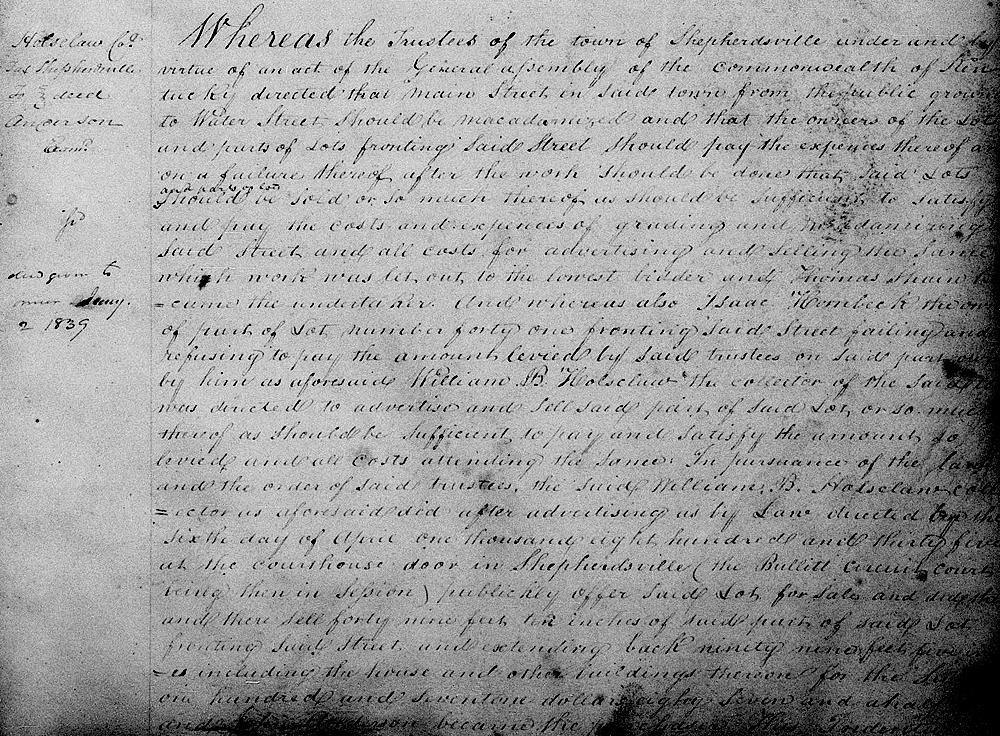 Holselaw Cor.
For Shepherdsville
To deed
Anderson
Whereas the Trustees of the town of Shepherdsville under and by
virtue of an act of the General assembly of the commonwealth of Ken
tucky directed that main Street in said town from the public groun
to Water Street should be macadamized and that the owners of the Lot
and parts of Lots fronting said Street should pay the expences thereof a
on a failure thereof after the work should be done that said Lots
and parts of Lots
should be sold or so much thereof as should be sufficient to satisfy
and pay the costs and expences of grading and macadamizing
said Street and all costs for advertising and selling the same
which work was let out to the lowest bidder and Thomas be
=came the undertaker. And whereas also Isaac Hornbeck the own
of part of Lot number forty one fronting said Street failing and
refusing to pay the amount levied by said trustees on said part own
by him as aforesaid William B. Holselaw the collector of the said
was directed to advertise and sell said part of said Lot or so much
thereof as should be sufficient to pay and satisfy the amount so
levied and all costs attending the same. In pursuance of the law
and the order of said trustees, the said William B. Holselaw coll
=ector as aforesaid did after advertising as by Law directed on the
sixth day of April one thousand eight hundred and thirty five
at the courthouse door in Shepherdsville (the Bullitt Circuit court
being then in session) publickly offer said Lot for sale and did then
and there sell forty nine feet ten inches of said part of said Lot
fronting said Street and extending back ninety nine feet five
=es including the house and other buildings thereon for the
one hundred and seventeen dollars eighty seven and a half
and Anderson became the purchaser
du given to
Jany.
2 1839